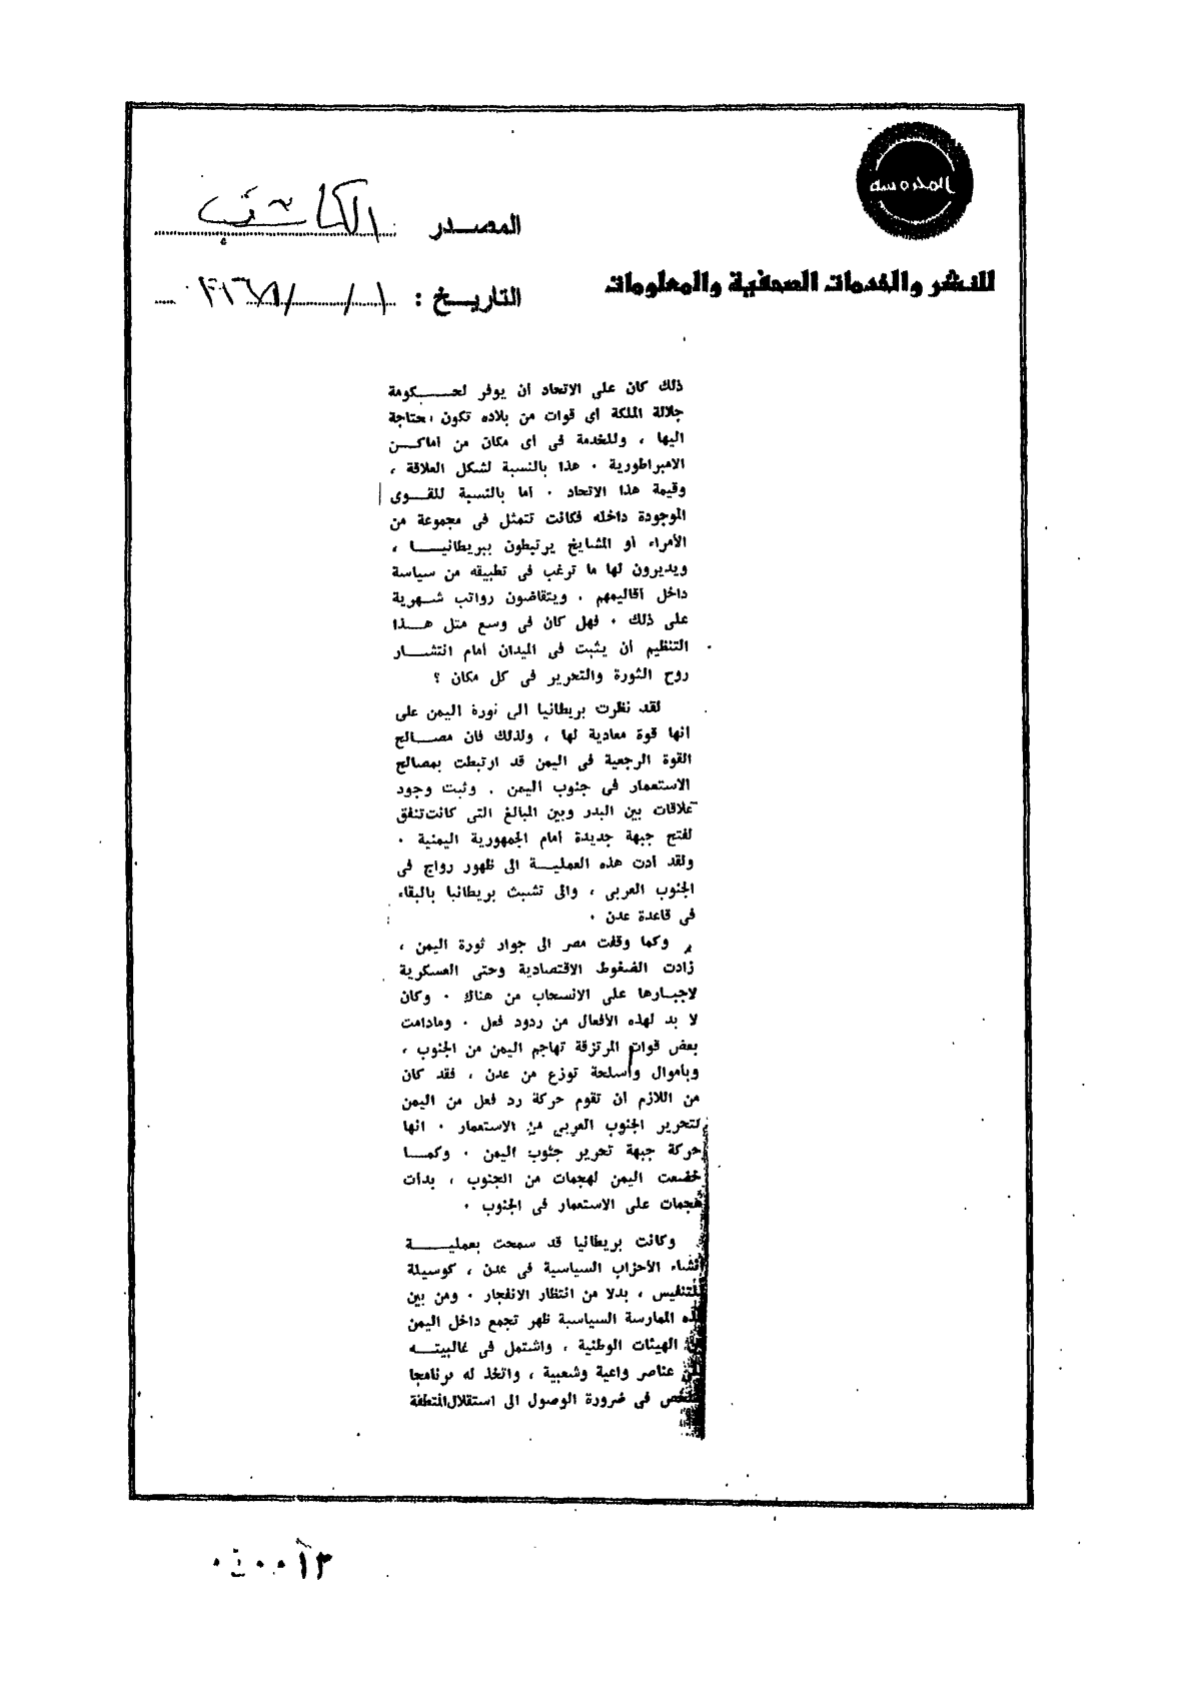 المحروسة
المصدر الكاتب
للنشر والخدمات الصحفية والمعلومات
التاريخ :
ذلك كان على الاتحاد ان يوفر لحكومة
جلالة الملكة اى قوات من بلاده تكون محتاجة
اليها ، وللخدمة فى اى مكان من اماكن
الامبراطورية . هذا بالنسبة لشكل العلاقة ،
وقيمة هذا الاتحاد . اما بالنسبة للقوى
الموجودة داخله فكانت تتمثل فى مجموعة من
الأمراء او المشايخ يرتبطون ببريطانيا ،
ويديرون لها ما ترغب فى تطبيقه من سياسة
داخل أقاليمهم . ويتقاضون رواتب شهرية
على ذلك . فهل كان فى وسع مثل هذا
التنظيم ان يثبت فى الميدان امام انتشار
روح الثورة والتحرير فى كل مكان ؟
لقد نظرت بريطانيا الى ثورة اليمن على
انها قوة معادية لها ، ولذلك فان مصالح
القوة الرجعية فى اليمن قد ارتبطت بمصالح
الاستعمار فى جنوب اليمن . وثبت وجود
علاقات بين البدر وبين المبالغ التى كانت تنفق
لفتح جبهة جديدة امام الجمهورية اليمنية .
ولقد ادت هذه العملية الى ظهور رواج فى
الجنوب العربى ، والى تشبث بريطانيا بالبقاء
فى قاعدة عدن .
وكما وقفت مصر الى جوار ثورة اليمن ،
زادت الضغوط الاقتصادية وحتى العسكرية
لاجبارها على الانسحاب من هناك . وكان
لا بد لهذه الأفعال من ردود فعل . ومادامت
بعض قوات المرتزقة تهاجم اليمن من الجنوب ،
وبأموال وأسلحة توزع من عدن ، فقد كان
من اللازم ان تقوم حركة رد فعل من اليمن
لتحرير الجنوب العربى من الاستعمار . انها
حركة جبهة تحرير جنوب اليمن . وكما
خضعت اليمن لهجمات من الجنوب ، بدأت
هجمات على الاستعمار فى الجنوب .
وكانت بريطانيا قد سمحت بعملية
انشاء الأحزاب السياسية فى عدن ، كوسيلة
للتنفيس ، بدلا من انتظار الانفجار . ومن بين
هذه الممارسة السياسية ظهر تجمع داخل اليمن
الهيئات الوطنية ، واشتمل فى غالبيته
عناصر واعية وشعبية ، واتخذ له برنامجا
فى ضرورة الوصول الى استقلال المنطقة